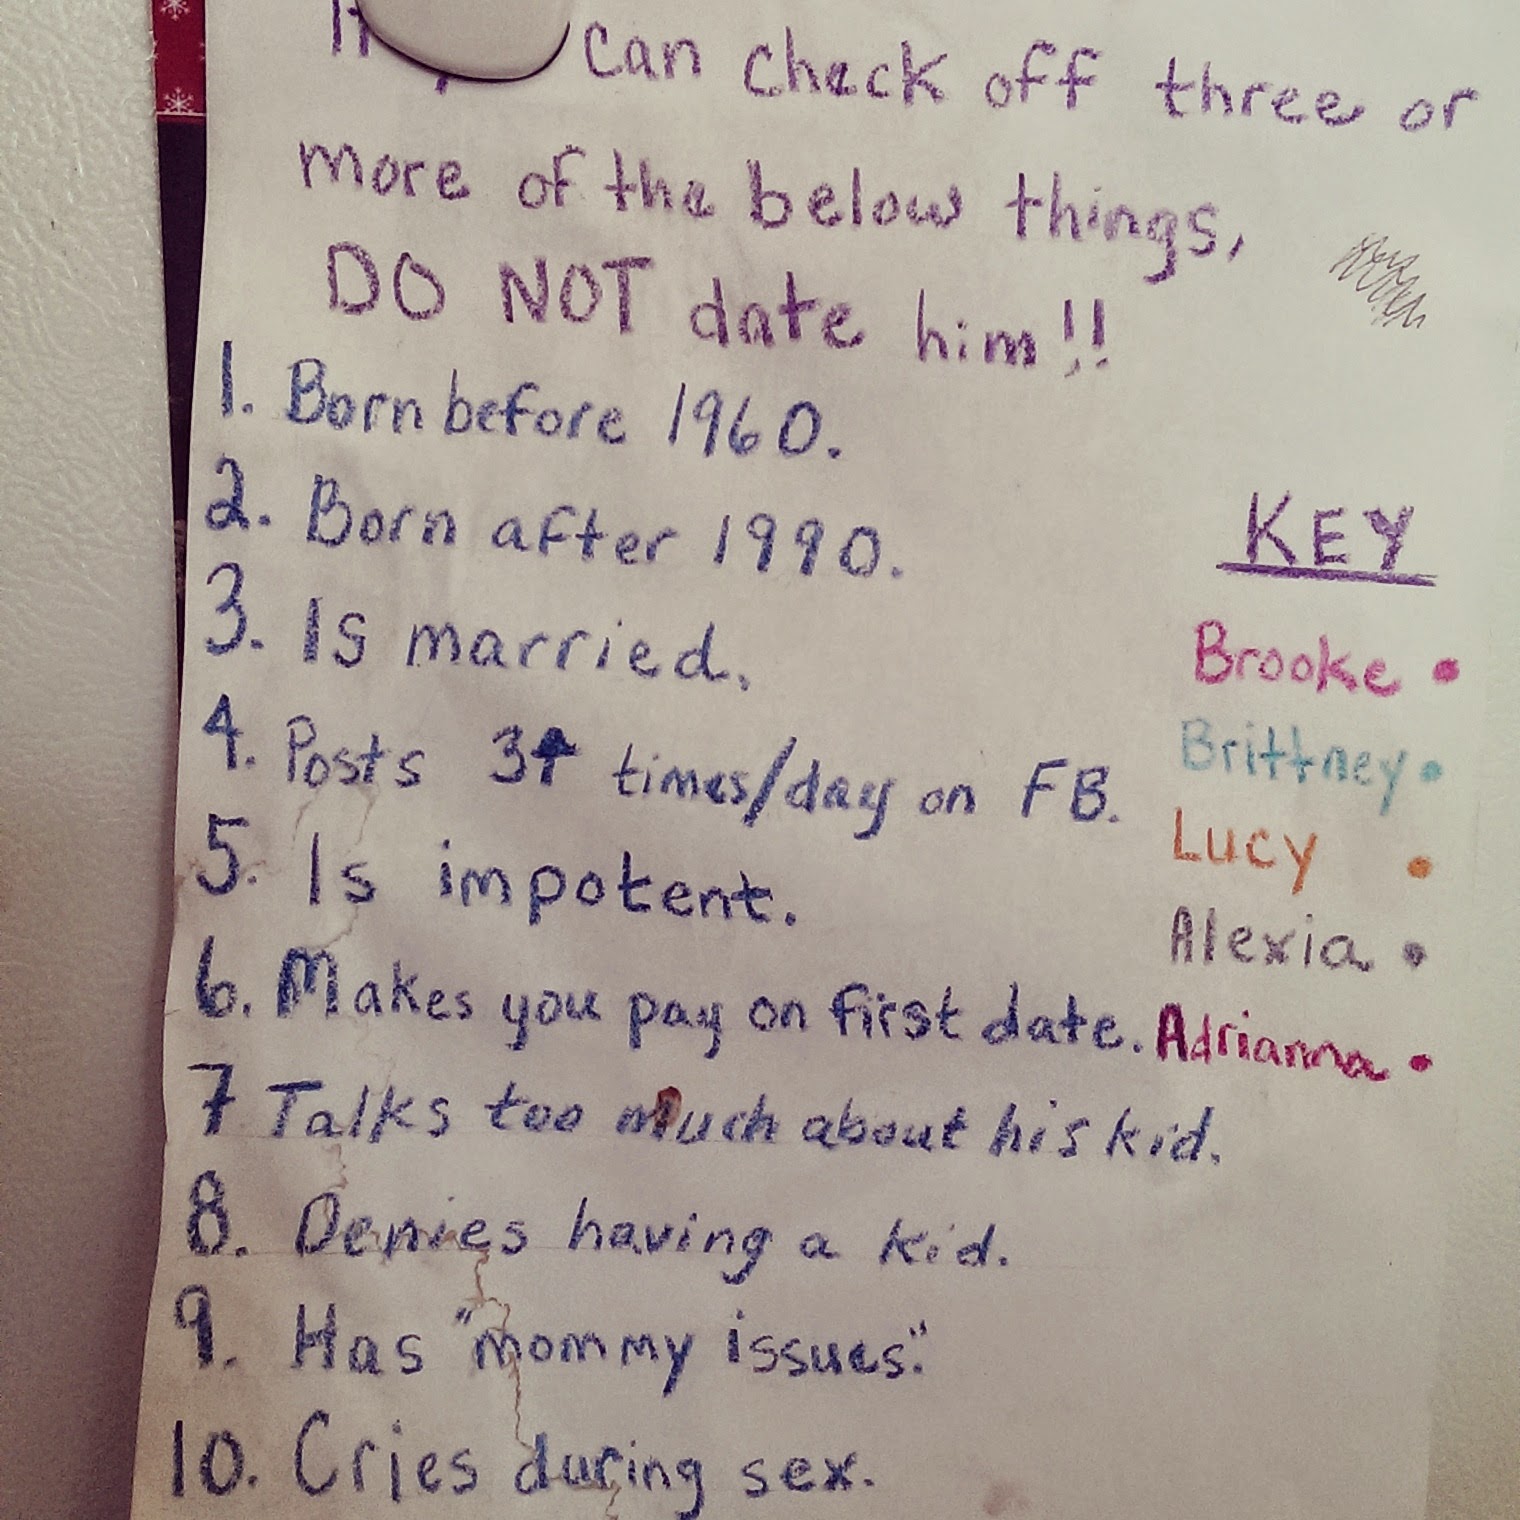 can check off three or
more of the below things,
DO NOT date him!!
1. Born before 1960.
2. Born after 1990.
3. Is married.
4. Posts 3+ times/day on FB.
5. Is impotent.
6. Makes you pay on first date.
7 Talks too much about his kid.
8. Denies having a kid.
9. Has "mommy issues."
10. Cries during sex.
KEY
Brooke
Brittney
Lucy
Alexia
Adrianna